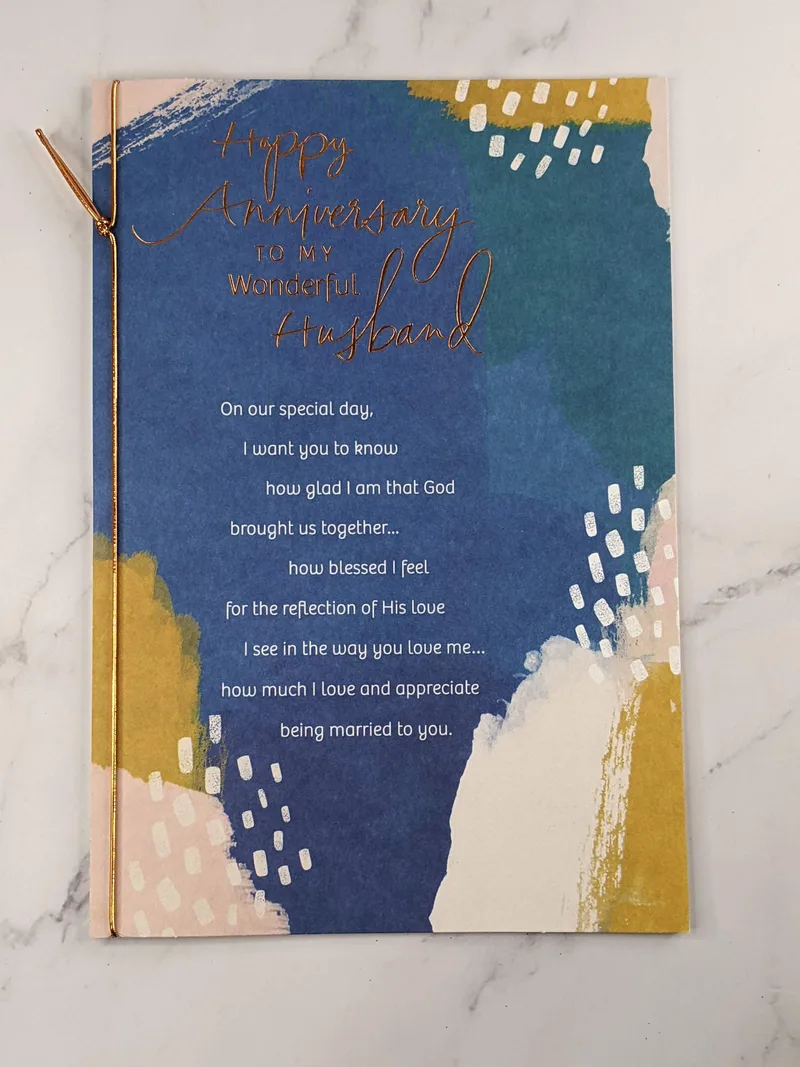 Happy
Anniversary
TO MY
Wonderful
Husband
On our special day,
I want you to know
how glad I am that God
brought us together...
how blessed I feel
for the reflection of His love
I see in the way you love me...
how much I love and appreciate
being married to you.